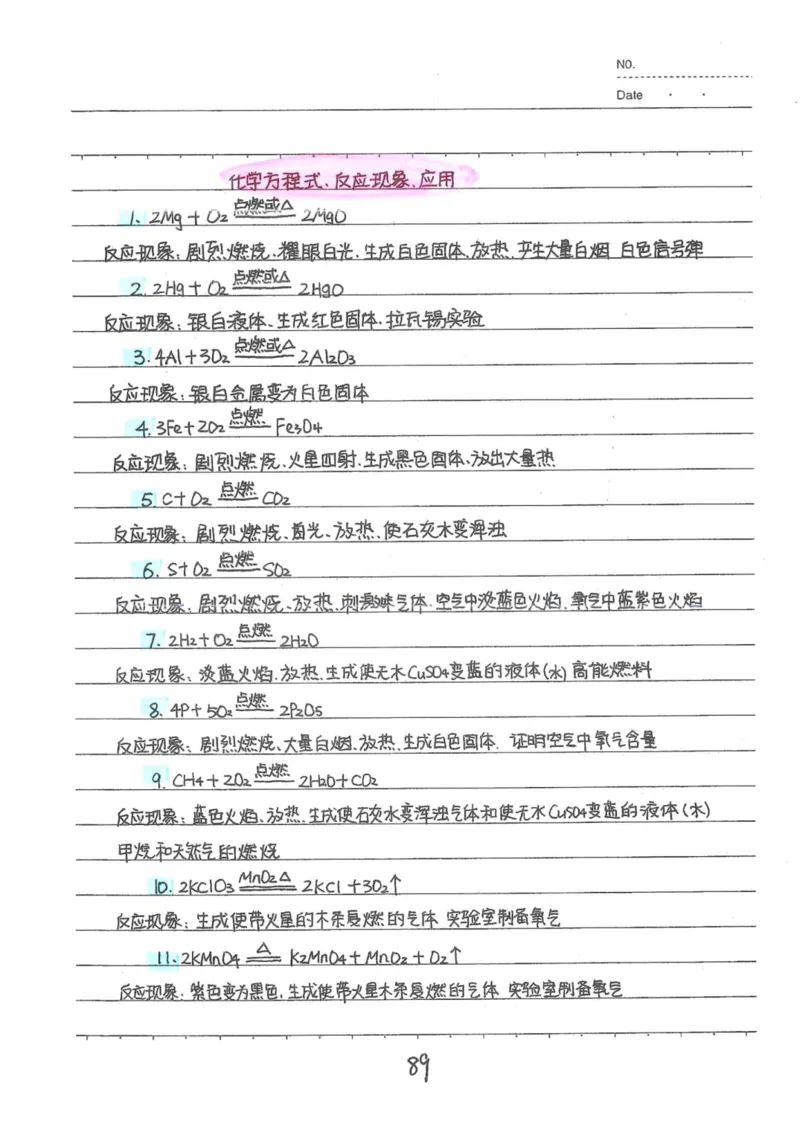 NO.
Date · ·
化学方程式、反应现象、应用
1. 2Mg + O₂ 点燃或△ 2MgO
反应现象：剧烈燃烧、耀眼白光、生成白色固体、放热、产生大量白烟 白色信号弹
2. 2Hg + O₂ 点燃或△ 2HgO
反应现象：银白液体、生成红色固体、拉瓦锡实验
3. 4Al + 3O₂ 点燃或△ 2Al₂O₃
反应现象：银白金属变为白色固体
4. 3Fe + 2O₂ 点燃 Fe₃O₄
反应现象：剧烈燃烧、火星四射、生成黑色固体、放出大量热
5. C + O₂ 点燃 CO₂
反应现象：剧烈燃烧、着光、放热、使石灰水变浑浊
6. S + O₂ 点燃 SO₂
反应现象：剧烈燃烧、放热、刺激味气体、空气中淡蓝色火焰、氧气中蓝紫色火焰
7. 2H₂ + O₂ 点燃 2H₂O
反应现象：淡蓝火焰、放热、生成使无水CuSO₄变蓝的液体(水) 高能燃料
8. 4P + 5O₂ 点燃 2P₂O₅
反应现象：剧烈燃烧、大量白烟、放热、生成白色固体、证明空气中氧气含量
9. CH₄ + 2O₂ 点燃 2H₂O + CO₂
反应现象：蓝色火焰、放热、生成使石灰水变浑浊气体和使无水CuSO₄变蓝的液体(水)
甲烷和天然气的燃烧
10. 2KClO₃ MnO₂△ 2KCl + 3O₂↑
反应现象：生成使带火星的木条复燃的气体 实验室制备氧气
11. 2KMnO₄ △ K₂MnO₄ + MnO₂ + O₂↑
反应现象：紫色变为黑色、生成使带火星木条复燃的气体 实验室制备氧气
89